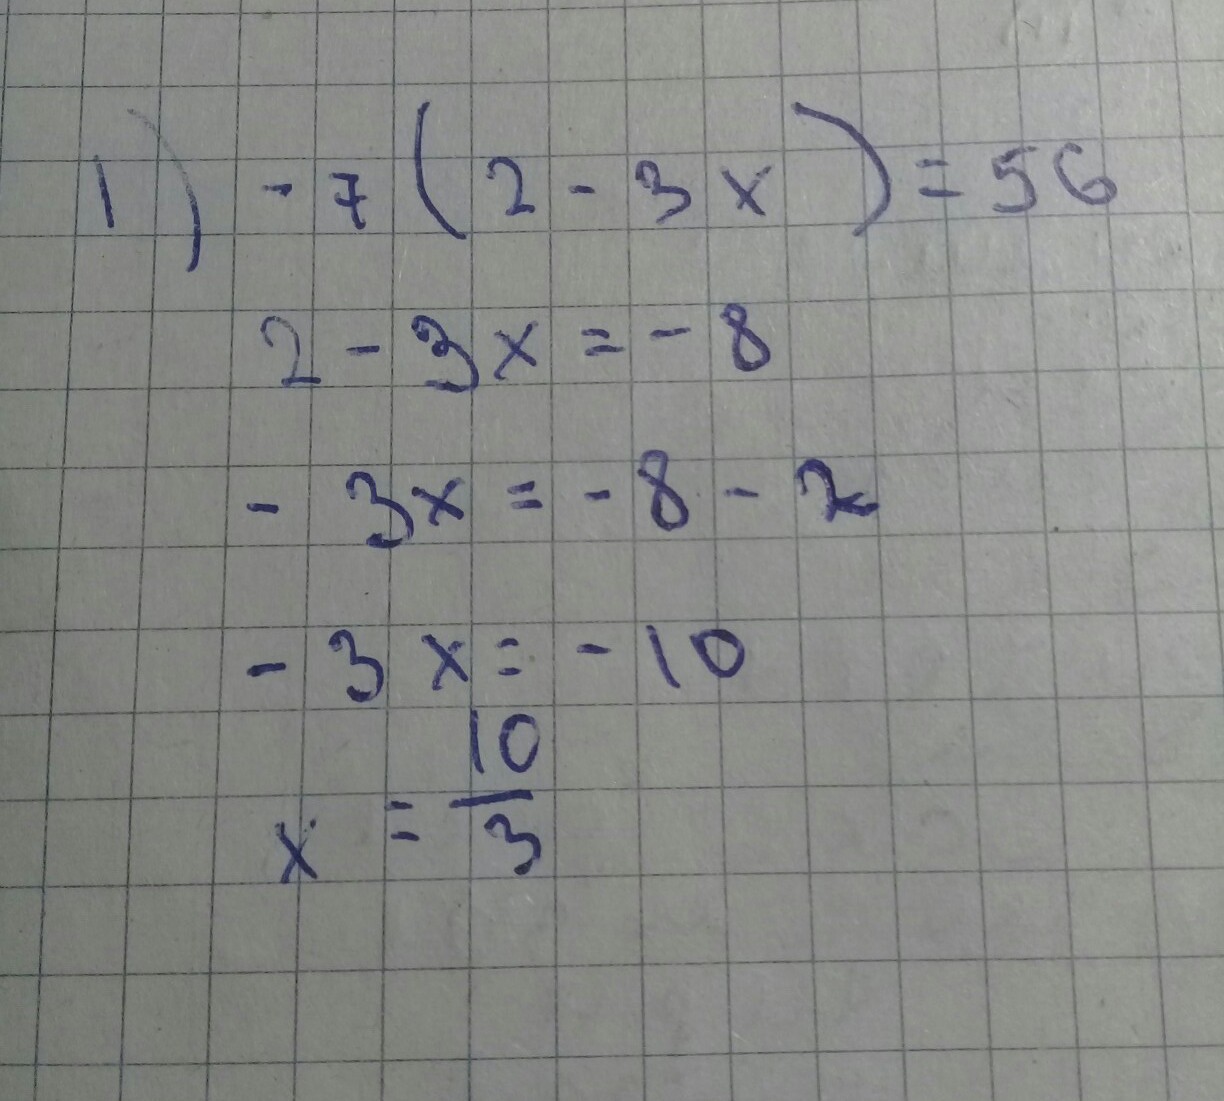 1) -7(2-3x)=56
2-3x=-8
-3x=-8-2
-3x=-10
x=10/3